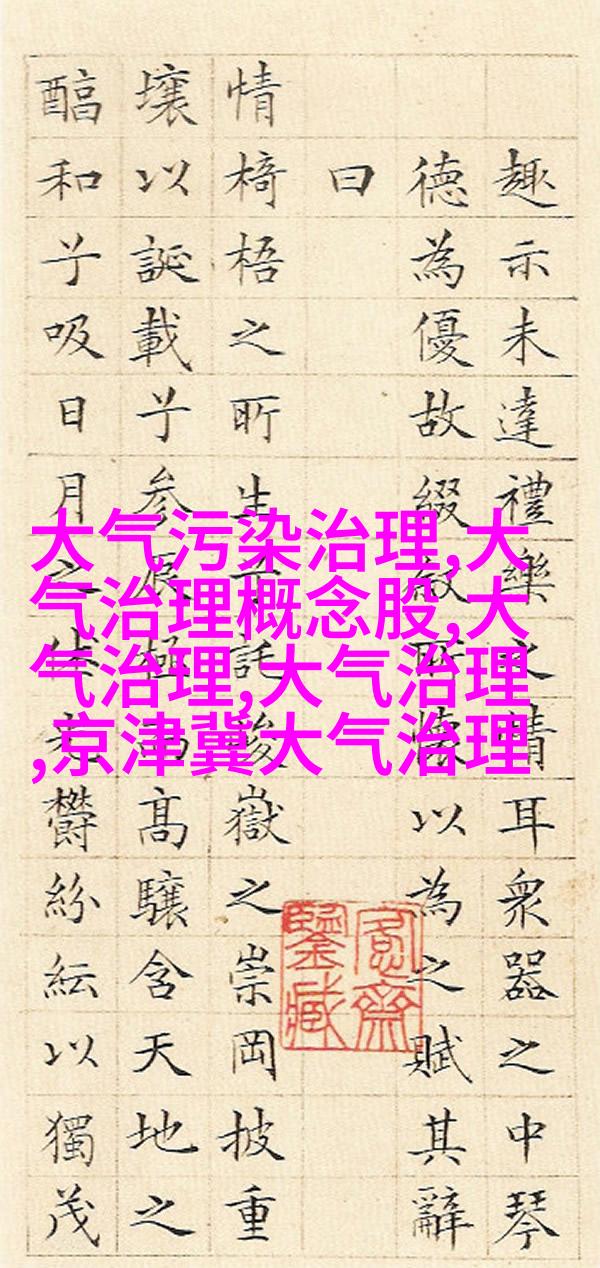 趣示未達禮樂之情耳衆器之中琴
德為優故綴敘所懷以為之賦其辭
曰
情椅梧之所生兮託峻嶽之崇岡披重
壤以誕載兮参辰極而高驤含天地之
醕和兮吸日月之休光鬱紛紜以獨茂
愙齋
鑒藏
大气污染治理,大
气治理概念股,大
气治理,大气治理
,京津冀大气治理